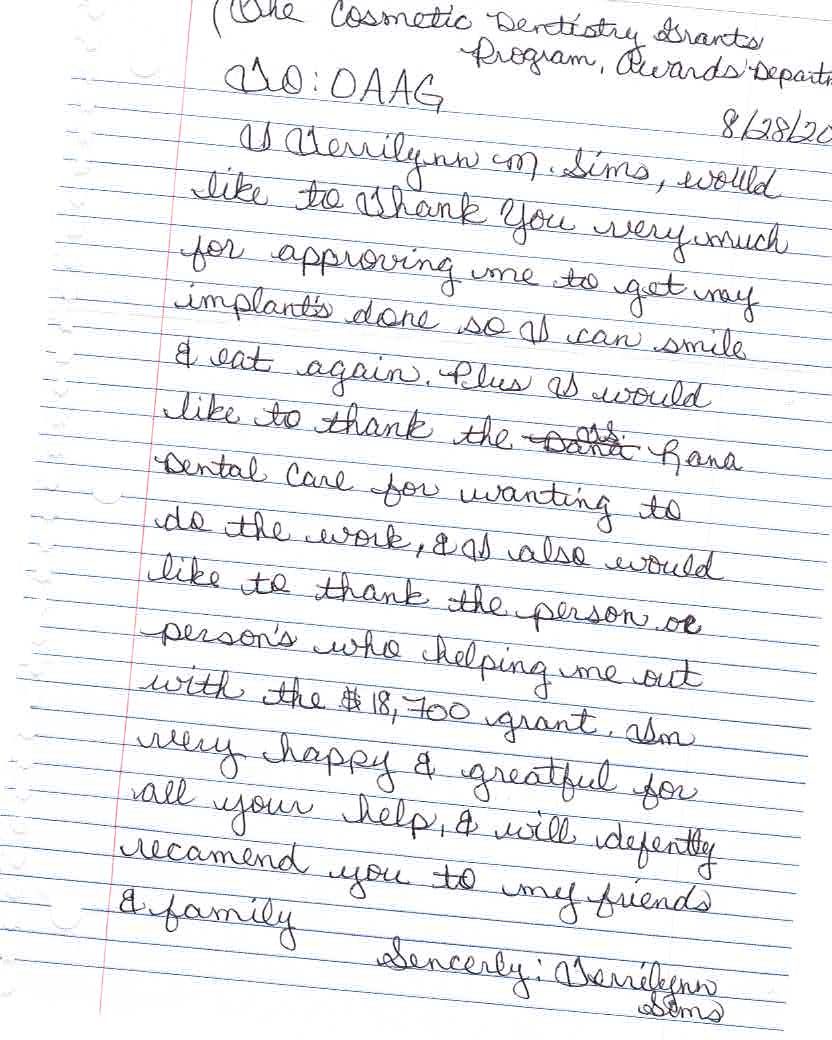 (The Cosmetic Dentistry Grants
Program, Awards Depart
TO: OAAG
8/28/20
I Terrilynn M. Sims, would
like to Thank You very much
for approving me to get my
implant's done so I can smile
& eat again. Plus I would
like to thank the Rana
Dental Care for wanting to
do the work, & I also would
like to thank the person or
person's who helping me out
with the $18,700 grant. Im
very happy & greatful for
all your help, & will defently
recamend you to my friends
& family
Sencerly: Terrilynn
Sims